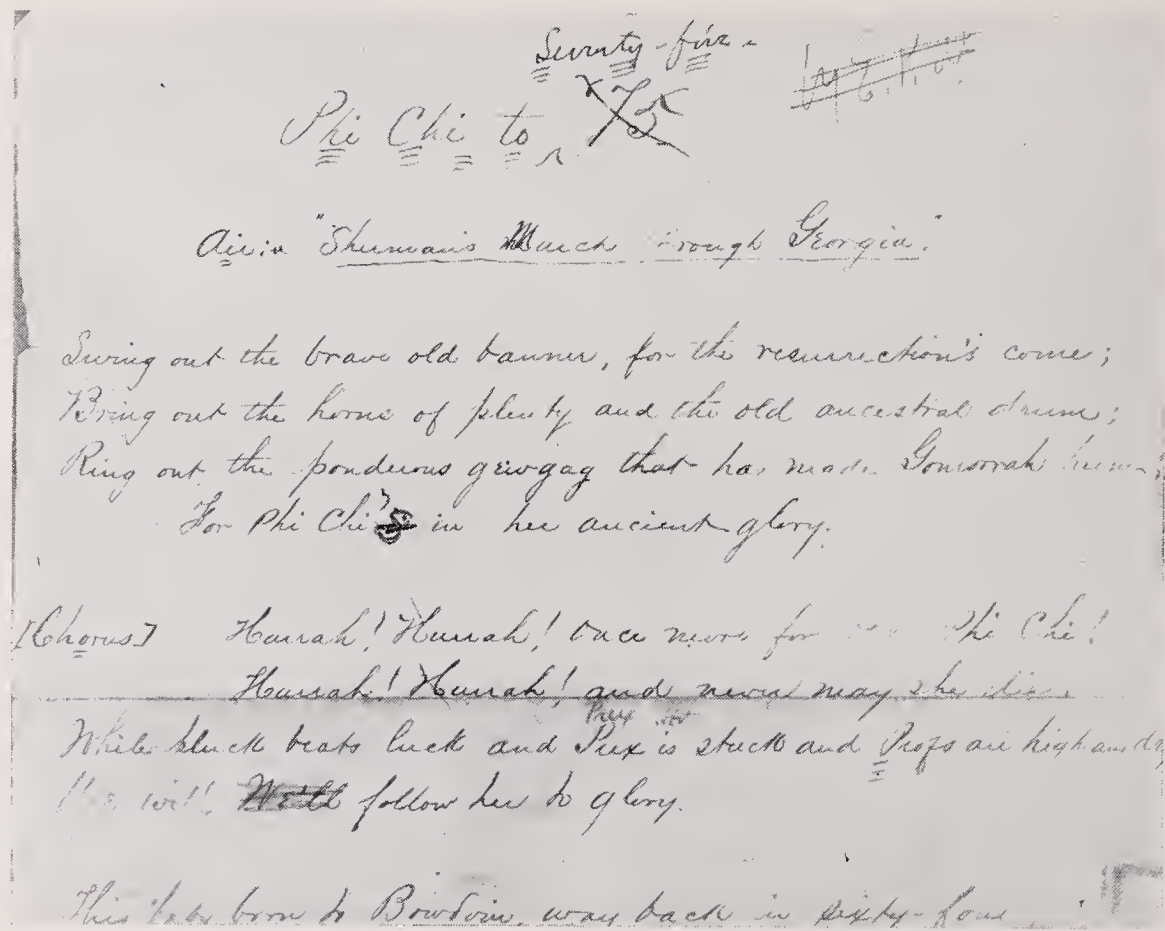 Seventy-five.
Phi Chi to ‸ '75
Air: "Sherman's March through Georgia."
Swing out the brave old banner, for the resurrection's come;
Bring out the horns of plenty and the old ancestral drum;
Ring out the ponderous gewgag that has made Gomorrah hum
For Phi Chi's in her ancient glory.
[Chorus] Hurrah! Hurrah! once more for Phi Chi!
Hurrah! Hurrah! and never may she die
Prex
While pluck beats luck and Prex is stuck and Profs are high and dry
We will We'll follow her to glory.
This born to Bowdoin, way back in sixty-four